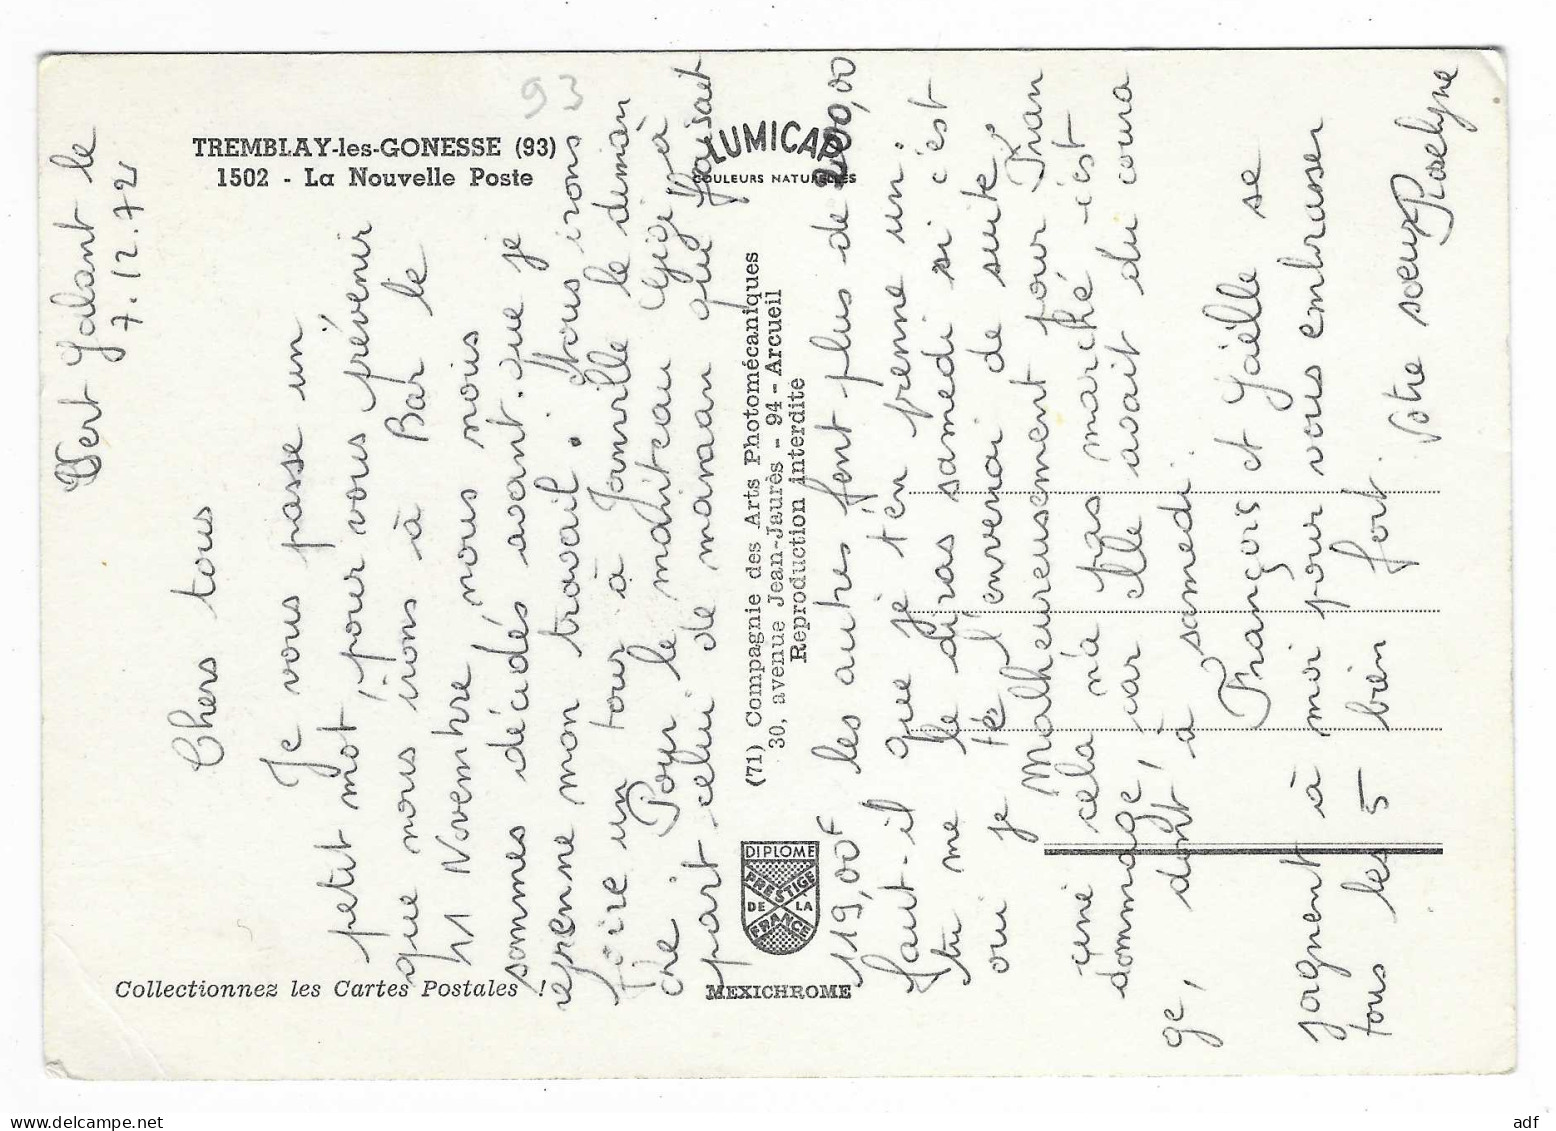 TREMBLAY-les-GONESSE (93)
1502 - La Nouvelle Poste
93
LUMICAP
COULEURS NATURELLES
(71) Compagnie des Arts Photomécaniques
30, avenue Jean-Jaurès - 94 - Arcueil
Reproduction interdite
DIPLOME
PRESTIGE
DE LA
FRANCE
MEXICHROME
Collectionnez les Cartes Postales !
Vert Galant le
7.12.72
Chers tous
Je vous passe un
petit mot, pour vous prévenir
que nous irons à Bar le
11 Novembre, nous nous
sommes décidés avant que je
reprenne mon travail. Nous irons
faire un tour à Joinville le diman
che. Pour le manteau Gigi à
part celui de maman que faisait
119,00F les autres font plus de 200,00
Faut-il que je t'en prenne un.
tu me le diras samedi si c'est
oui je te l'enverrai de suite.
Malheureusement pour Fran
çine cela n'a pas marché c'est
dommage, car elle avait du coura
ge, dont à samedi.
François et Gaëlle se
joignent à moi pour vous embrasser
tous les 5 bien fort.
Votre soeur Roselyne
adf